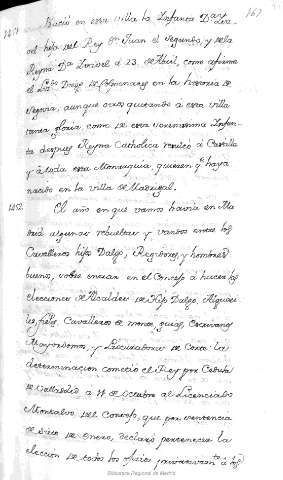 167
1451 Nació en esta villa la Infanta Dª Isa-
vel hija del Rey Dn Juan el Segundo, y dela
Reyna Dª Isavel á 23. de Abril, como afirma
el Lizdo Diego de Colmenares en la historia de
Segovia, aunque otros quitando á esta villa
tanta gloria, como de esta serenissima Infan-
ta despues Reyna Catholica resultó á Castilla
y á toda esta Monarquia, quieren qe haya
nacido en la villa de Madrigal.
1452. El año en que vamos havia en Ma
drid algunas rebueltas y vandos entre los
Cavalleros hijos Dalgo, Regidores, y hombres
buenos, sobre entrar en el Concejo á hacer las
elecciones de Alcaldes de Hijos Dalgo, Alguaci
les, fieles, Cavalleros de monte, guias, Escrivanos
Mayordomos, y Procuradores de Corte: la
determinacion cometió el Rey por Cedula
de Valladolid a 4 de Octubre al Licenciado
Montalvo del Consejo, que por sentencia
de cinco de enero, declaró pertenecer la
eleccion de todos los oficios privativamte á los
Biblioteca Regional de Madrid